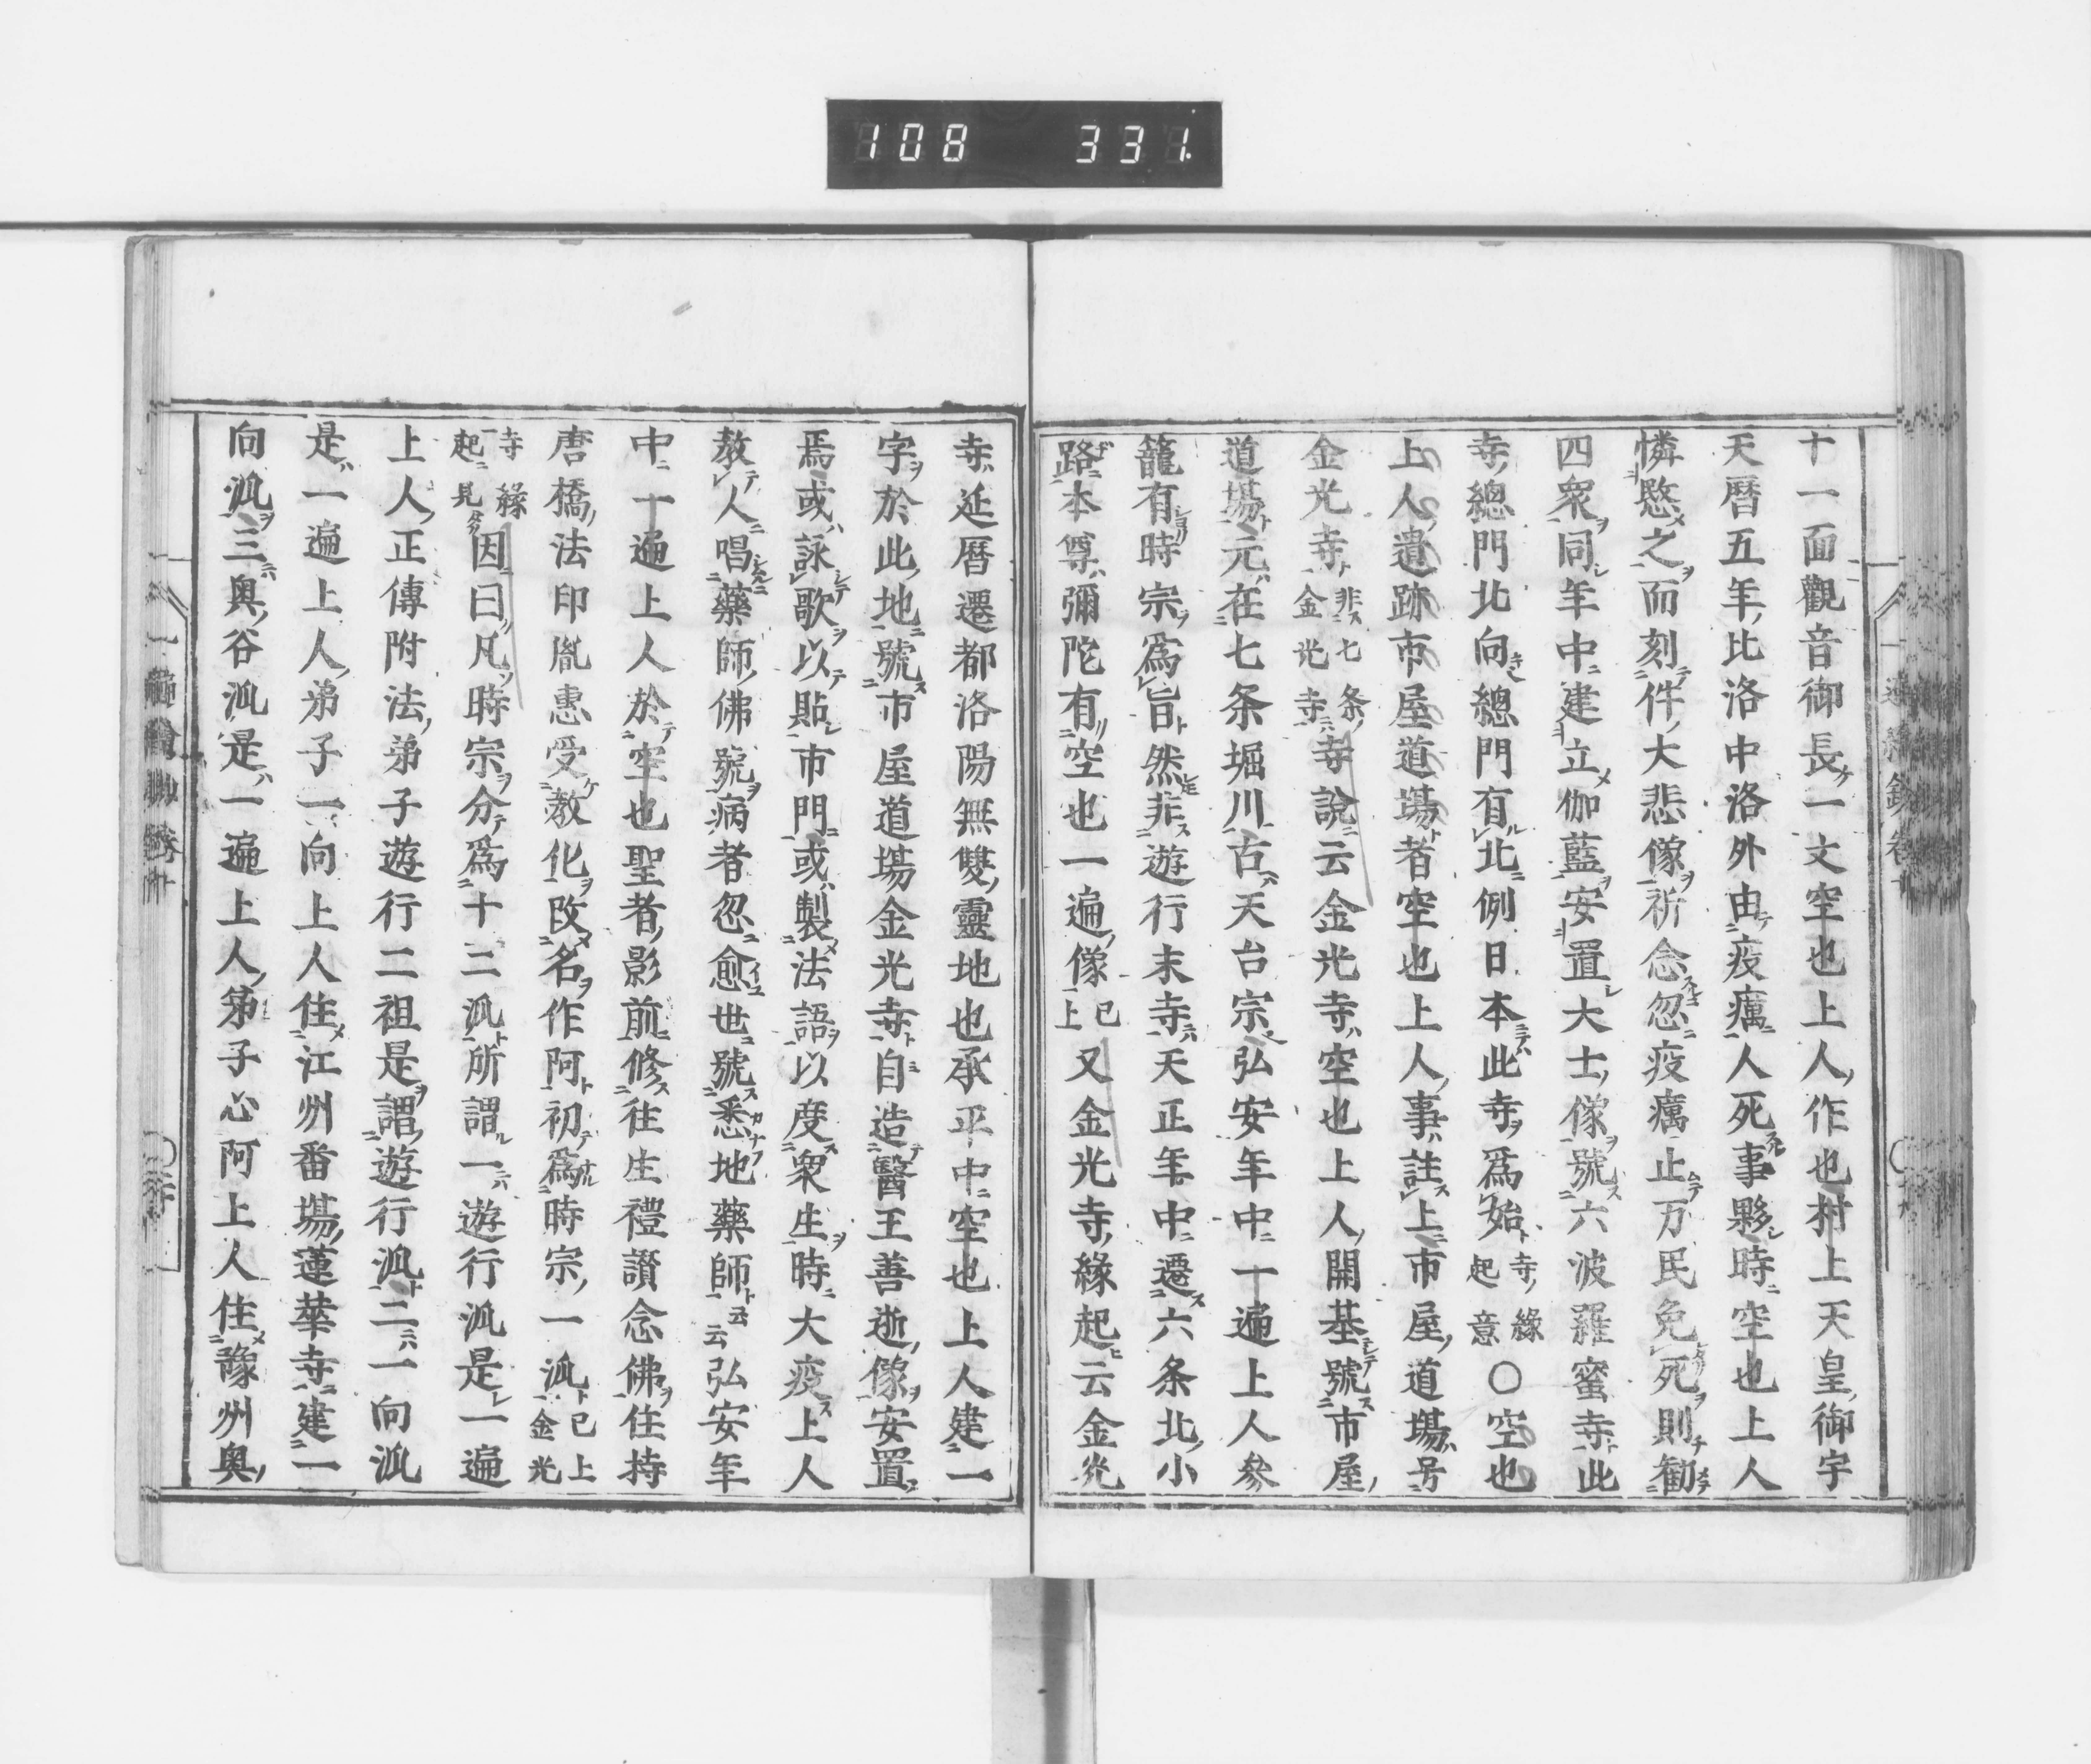 108 331.
十一面觀音御長一文空也上人作也村上天皇御宇
天曆五年比洛中洛外由疫癘人死事夥時空也上人
憐愍之而刻件大悲像祈念忽疫癘止万民免死則勧
四衆同年中建立伽藍安置大士像號六波羅蜜寺此
寺總門北向總門有北例日本此寺爲始寺緣起意〇空也
上人遺跡市屋道場者空也上人事註上市屋道場号
金光寺非七条金光寺寺說云金光寺空也上人開基號市屋
道場元在七条堀川古天台宗弘安年中一遍上人參
籠有時宗爲旨然非遊行末寺天正年中遷六条北小
路本尊彌陀有空也一遍像已上又金光寺緣起云金光
寺延曆遷都洛陽無雙靈地也承平中空也上人建一
字於此地號市屋道場金光寺自造醫王善逝像安置
焉或詠歌以貼市門或製法語以度衆生時大疫上人
教人唱藥師佛號病者忽愈世號悉地藥師云云弘安年
中一遍上人於空也聖者影前修往生禮讃念佛住持
唐橋法印胤惠受教化改名作阿初爲時宗一派已上金光
寺緣起見因曰凡時宗分爲十二派所謂一遊行派是一遍
上人正傳附法弟子遊行二祖是謂遊行派二一向派
是一遍上人弟子一向上人住江州番場蓮華寺建一
向派三奧谷派是一遍上人弟子心阿上人住豫州奧